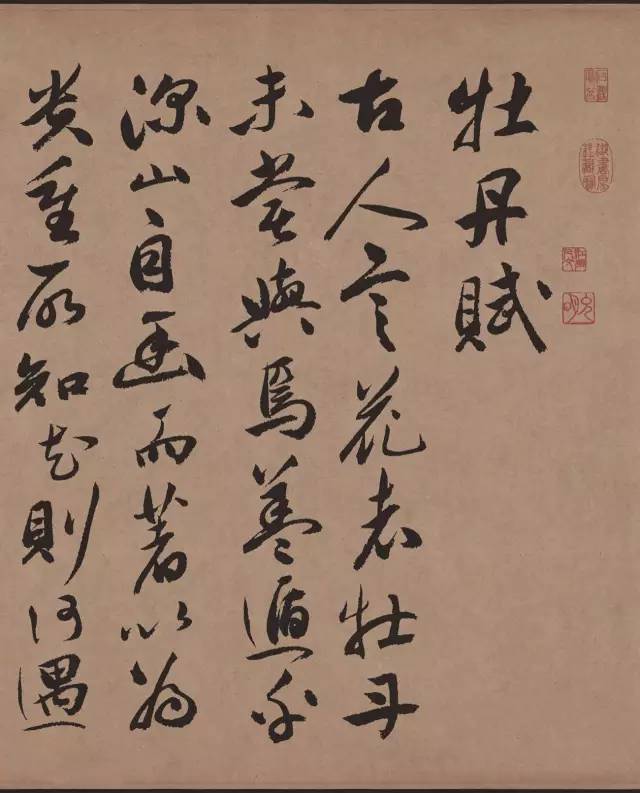 牡丹賦
古人言花者牡丹
未甞與焉葢遁於
深山自幽而著以為
貴重所知花則何遇